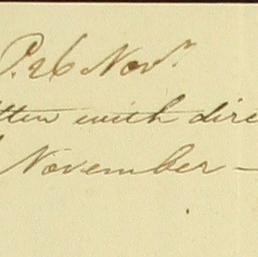 P. 26 Novr.
tten with dire
November —